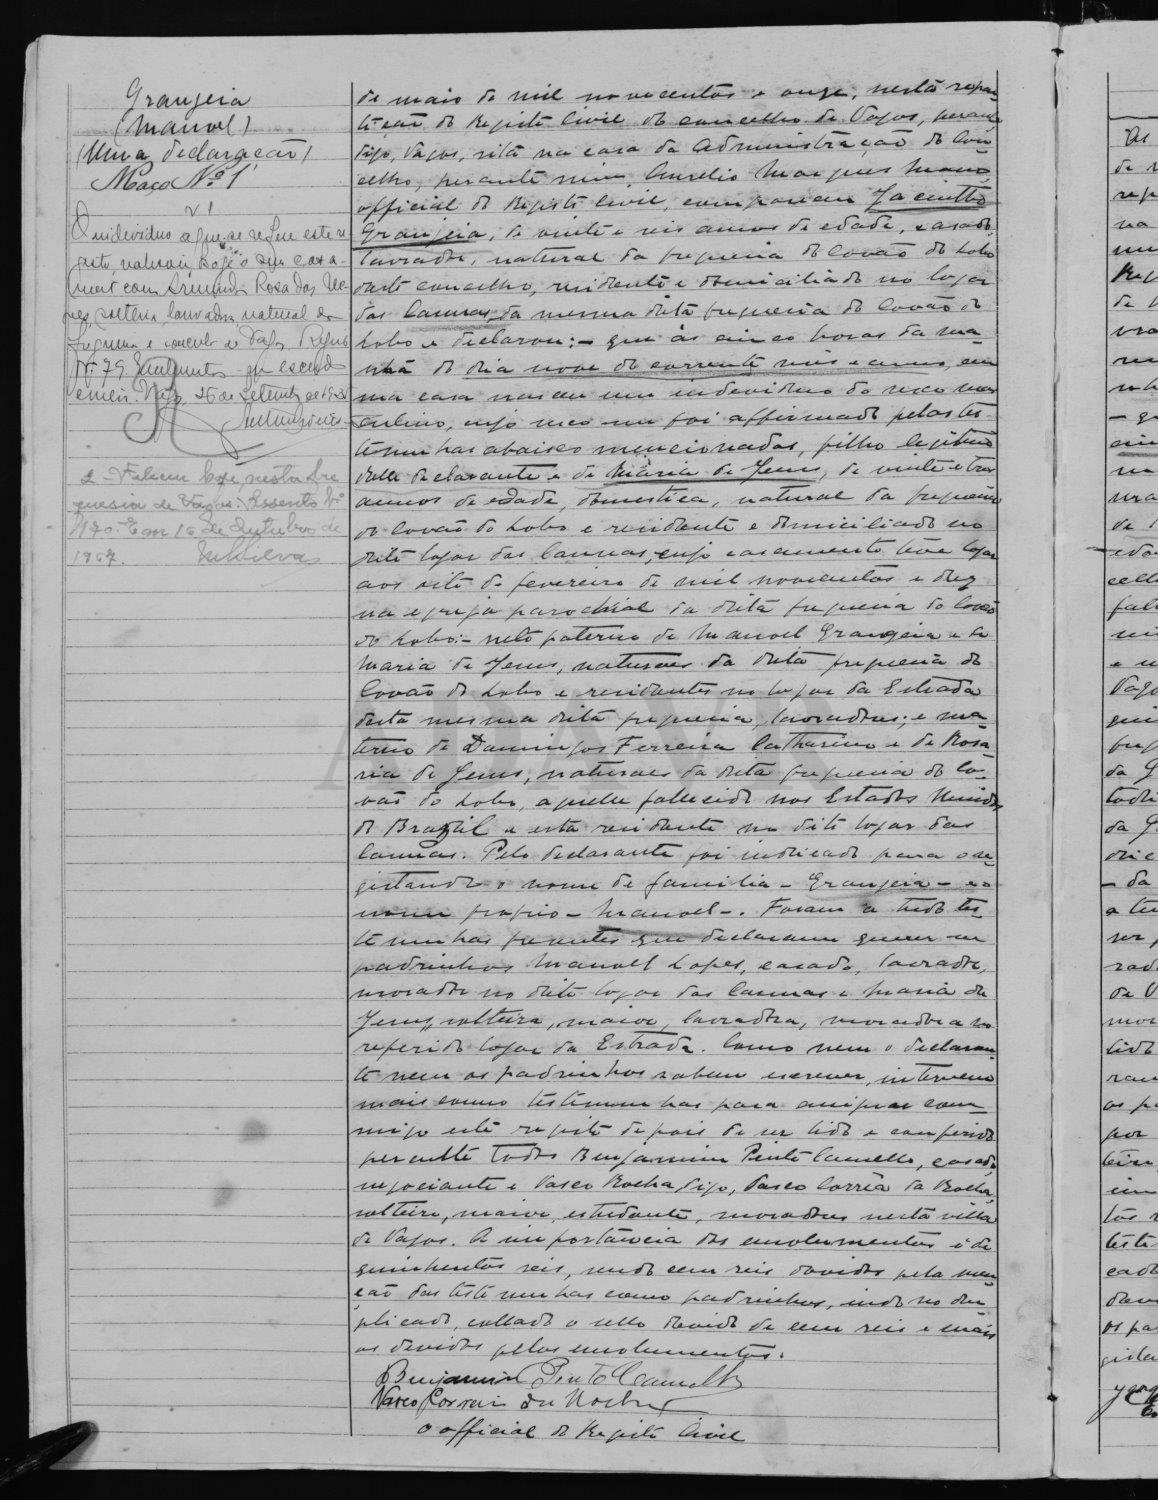 Grangeia
(Manoel)
(Uma declaração)
Maço Nº 1
Nº 1
O individuo a que se refere este re
gisto, realisou hoje o seu casa-
mento com Rosa dos
solteira, lavradora, natural da
freguesia e concelho de Vagos. Registo
Nº 79.
Vagos, 26 de Setembro de
2 - Faleceu hoje, nesta fre
guesia de Vagos. Assento Nº
170. Em 16 de Outubro de
1967. Silva
de maio de mil novecentos e onze, nesta repar-
tição do Registo Civil do concelho de Vagos, perante
digo, Vagos, sita na casa da Administração do Con-
celho, perante mim, Aurelio Marques Mano
official do Registo Civil, compareceu Jacintho
Grangeia, de vinte e seis annos de edade, casado,
lavrador, natural da freguesia do Covão do Lobo
deste concelho, residente e domiciliado no logar
das Cannas, da mesma dita freguesia do Covão do
Lobo e declarou: - que ás cinco horas da ma-
nhã do dia nove do corrente mês e anno, em
sua casa nasceu um individuo do sexo mas-
culino, cujo sexo me foi affirmado pelas tes-
temunhas abaixo mencionadas, filho legitimo
delle declarante e de Maria de Jesus, de vinte e tres
annos de edade, domestica, natural da freguesia
do Covão do Lobo e residente e domiciliado no
dito logar das Cannas, cujo casamento teve logar
aos sete de fevereiro de mil novecentos e dez
na egreja parochial da dita freguesia do Covão
do Lobo: - neto paterno de Manoel Grangeia e de
Maria de Jesus, naturaes da dita freguesia do
Covão do Lobo e residentes no logar da Estrada
desta mesma dita freguesia, lavradores; e ma-
terno de Domingos Ferreira Catharino e de Rosa-
ria de Jesus, naturaes da dita freguesia do Co-
vão do Lobo, aquelle fallecido nos Estados Unidos
do Brazil e esta residente no dito logar das
Cannas. Pelo declarante foi indicado para o re-
gistando o nome de familia - Grangeia - e o
nome proprio - Manoel -. Foram a tudo tes-
temunhas presentes que declararam querer ser
padrinhos Manoel Lopes, casado, lavrador,
morador no dito logar das Cannas e Maria de
Jesus, solteira, maior, lavradora, moradora no
referido logar da Estrada. Como nem o declaran-
te nem os padrinhos sabem escrever, interveem
mais como testemunhas para assignar com-
migo este registo depois de ser lido e conferido
perante todos Benjamim Pinto Camello, casado,
negociante e Vasco Rocha, digo, Vasco Corrêa da Rocha,
solteiro, maior, estudante, moradores nesta villa
de Vagos. A importancia dos emolumentos é de
quinhentos reis, sendo cem reis devidos pela men-
ção das testemunhas como padrinhos, indo no du-
plicado, collado o sello devido de cem reis e mais
os devidos pelos emolumentos.
Benjamim Pinto Camello
Vasco Correia da Rocha
O official do Registo Civil